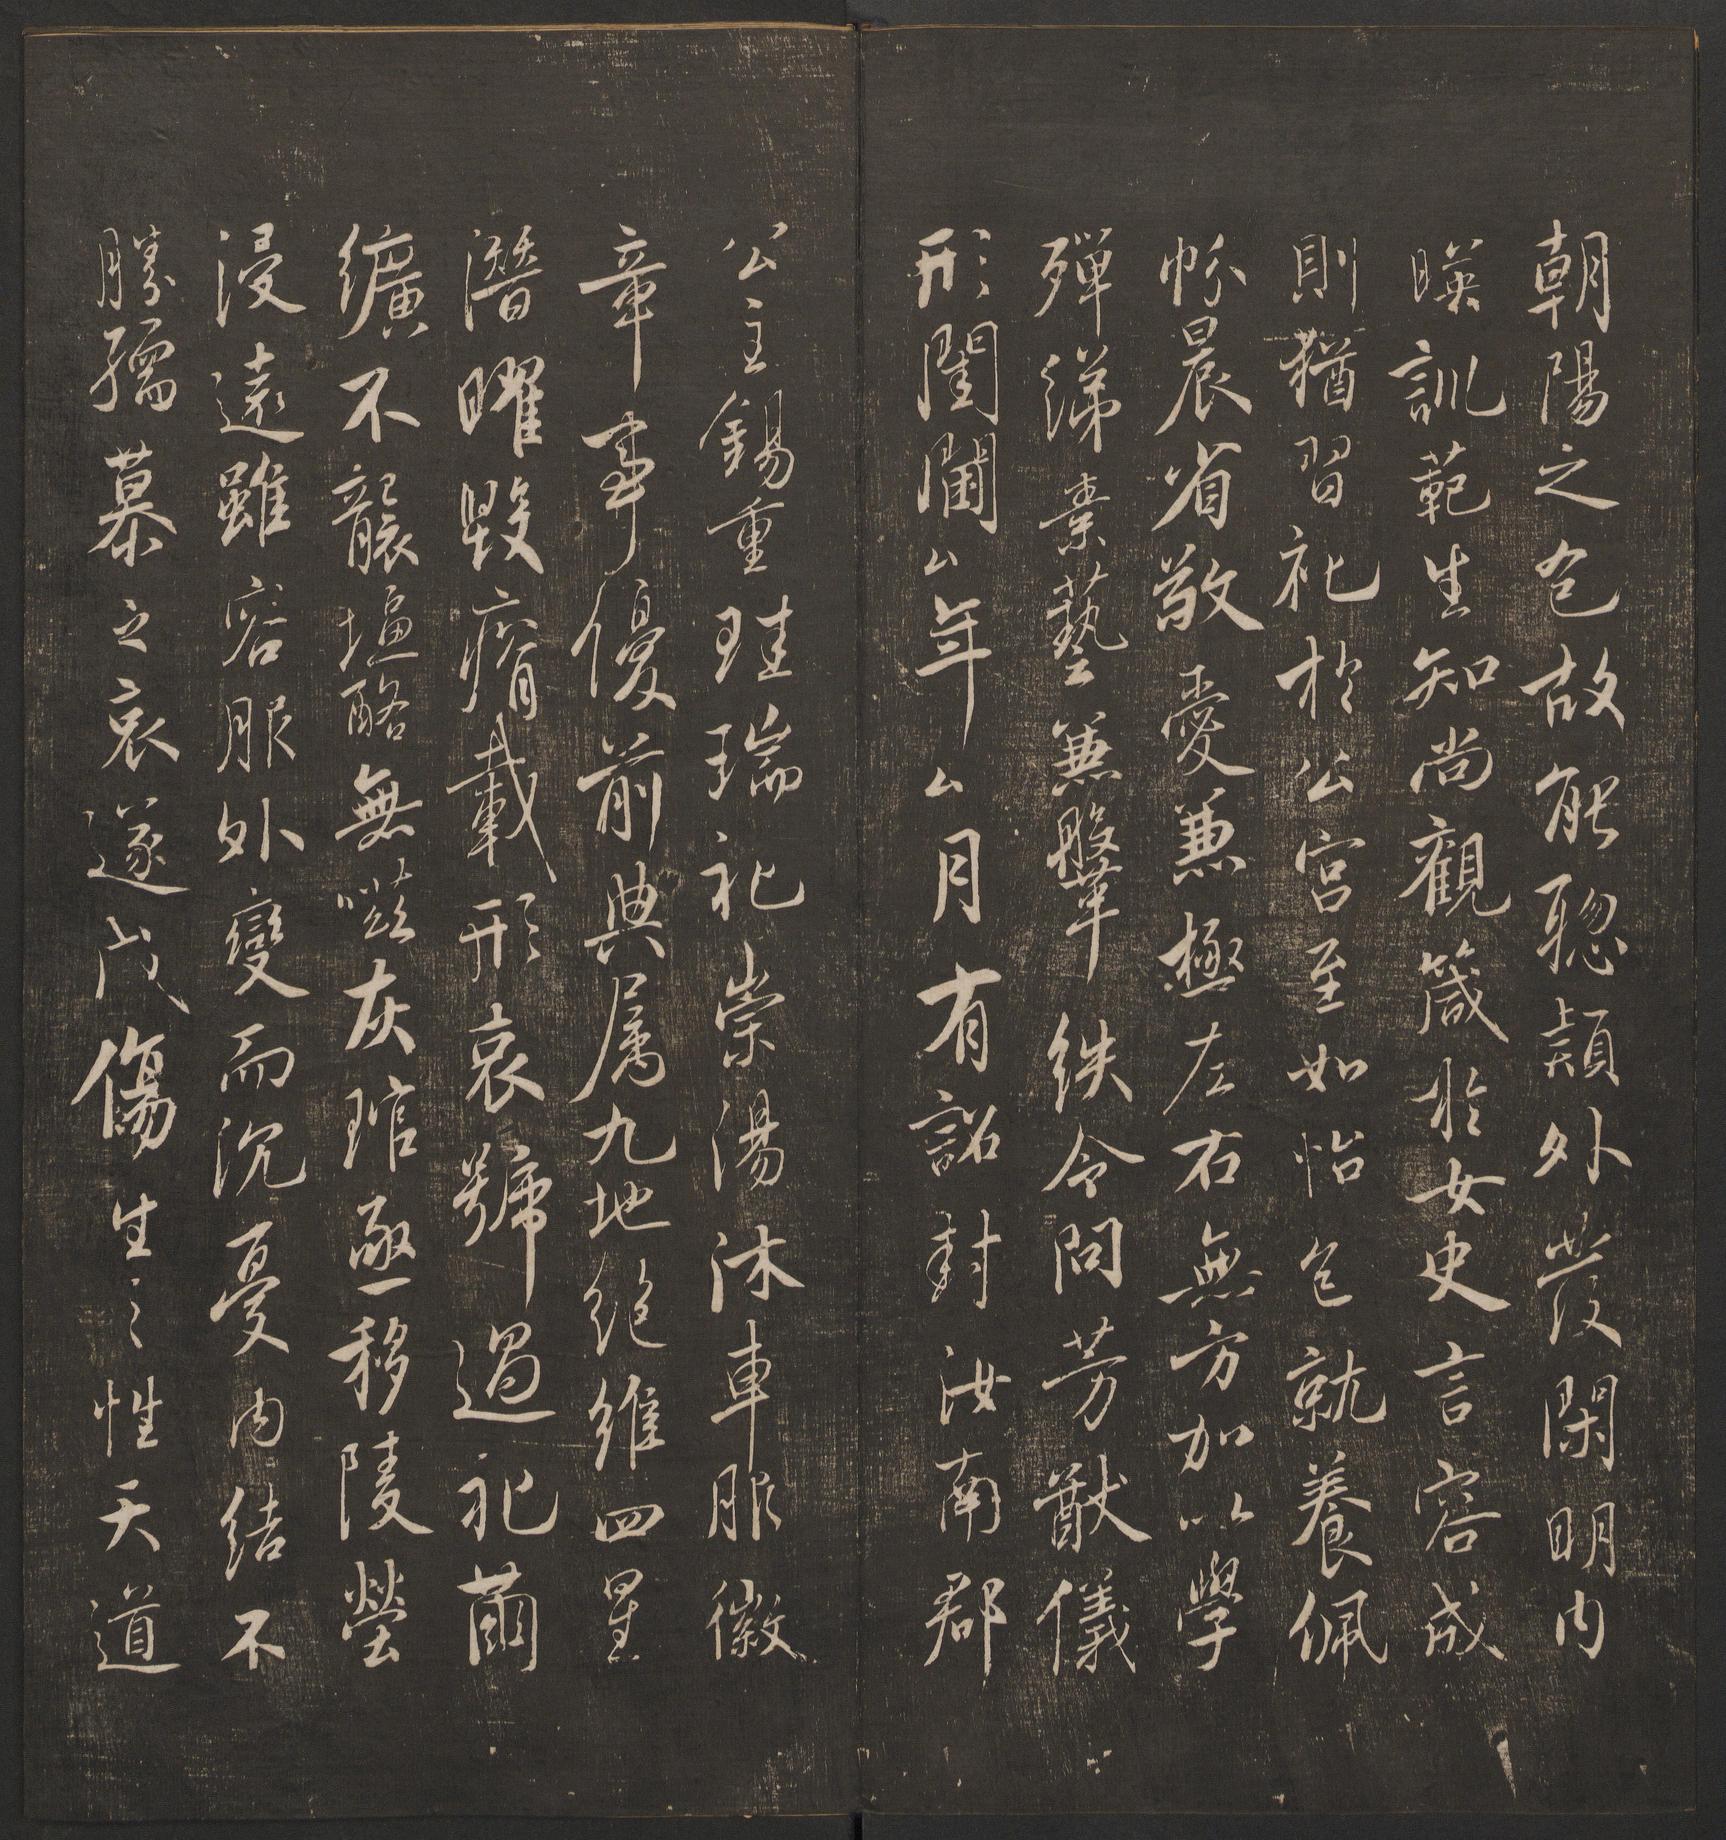 朝陽之色故能聰穎外發閑明内
暎訓範生知尚觀箴於女史言容成
則猶習礼於公宮至如怡色就養佩
帉晨省敬愛兼極左右無方加以學
殫綈素藝兼鞶紩令問芳猷儀
形閨閫厶年厶月有詔封汝南郡
公主錫重珪瑞礼崇湯沐車服徽
章事優前典属九地絶維四星
潜曜毀瘠載形哀號過礼繭
纊不襲塩酪無嗞灰琯亟移陵塋
浸遠雖容服外變而沉憂内結不
勝孺慕之哀遂成傷生之性天道